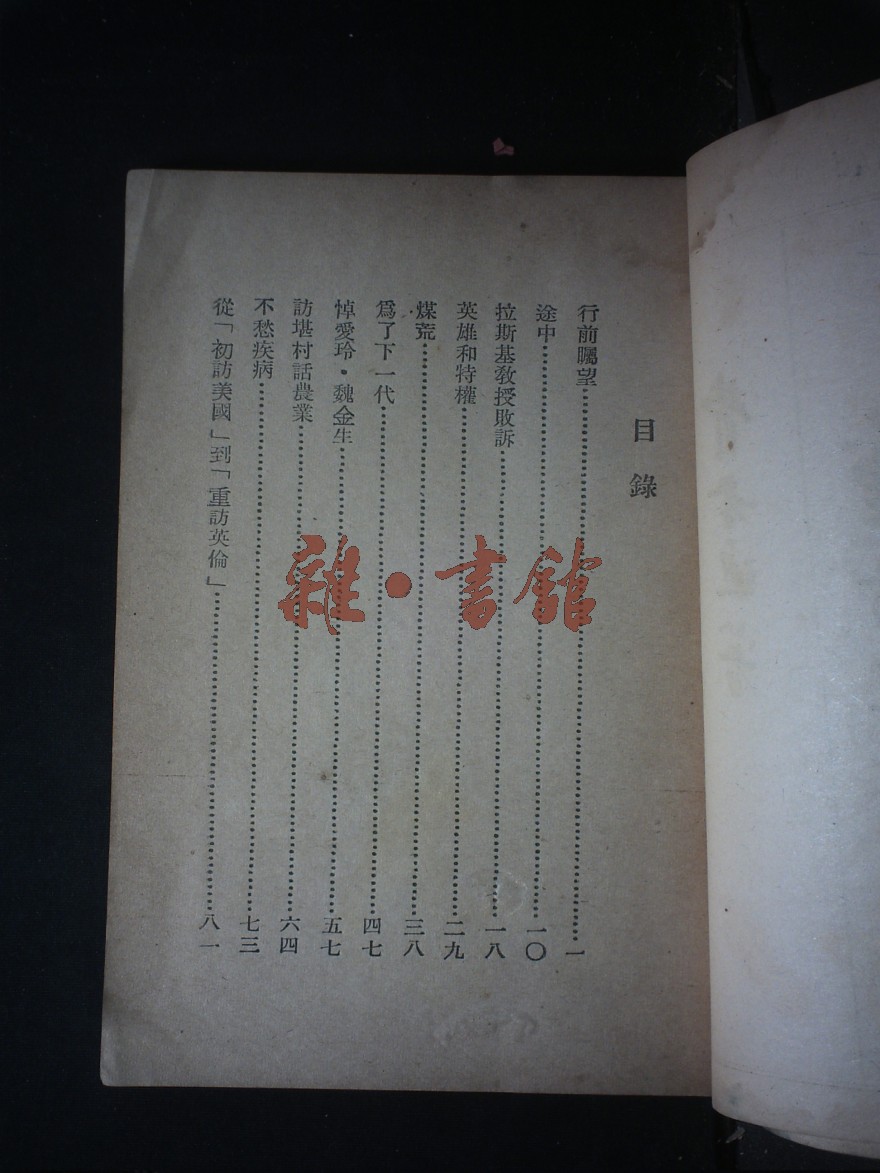 目錄
行前矚望……一
途中……一〇
拉斯基教授敗訴……一八
英雄和特權……二九
煤荒……三八
爲了下一代……四七
悼愛玲·魏金生……五七
訪堪村話農業……六四
不愁疾病……七三
從「初訪美國」到「重訪英倫」……八一
雜·書館